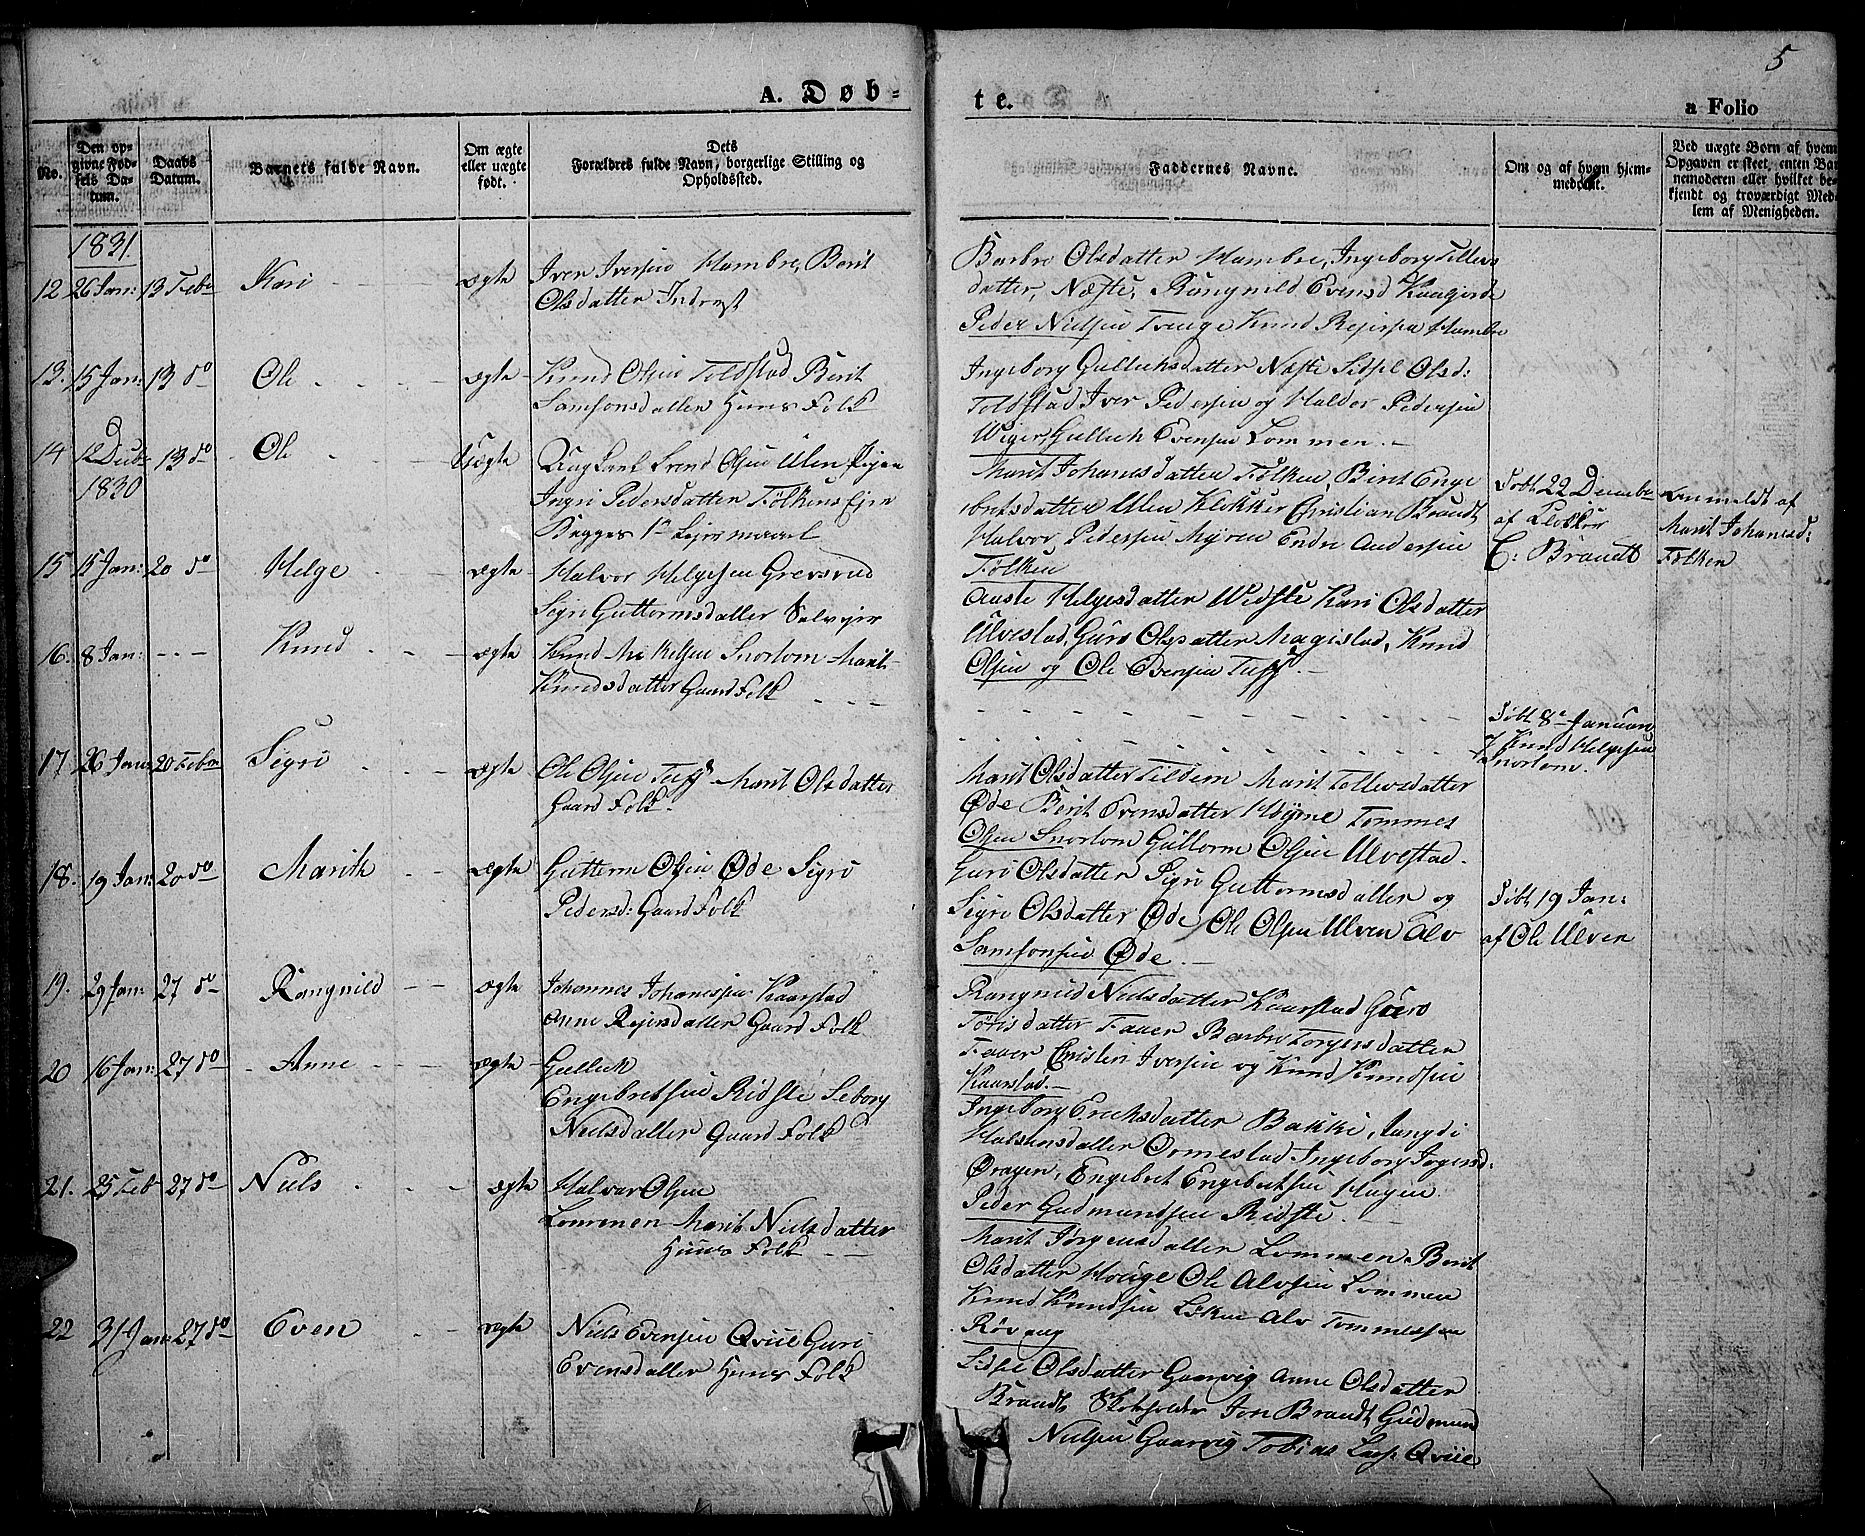 5
A. Døb=
te.
a Folio
No.
Den op-
givne Fød-
sels Da-
tum.
Daabs
Datum.
Barnets fulde Navn.
Om ægte
eller uægte
født.
Dets
Forældres fulde Navn, borgerlige Stilling og
Opholdssted.
Faddernes Navne.
Om og af hvem hjem-
medøbt.
Ved uægte Børn af hvem
Opgaven er skeet, enten Bar-
nemoderen eller hvilket be-
kjendt og troværdigt Med-
lem af Menigheden.
1831.
12 26 Jan: 13 Febr Kari ægte Iver Iversen Hambre, Berit
Olsdatter Indrest
Barbro Olsdatter Hambre, Ingeborg Tollevs
datter, Næste, Rangnild Evensd Kaagjorde
Peder Nielsen Knud Hambre
13. 15 Jan: 13 do Ole ægte Knud Olsen Toldstad Berit
Samsonsdatter Huus Folk
Ingeborg Gulliksdatter Næste Olsd:
Toldstad Iver Pedersen og Haldor Pedersen
Gullich Evensen Lommen.
14 12 Decbr 13 do Ole Uægte Svend Olsen Ulen
1830
Ingri Pedersdatter Følkens Eje
Begges 1te Lejermaal
Marit Johanesdatter Følken, Berit Enge
bretsdatter Ulen Klokker Christian Brandt
Halvor Pedersen Myren Endre Andersen
Følken
Døbt 22 December
af Klokker
C: Brandt
Anmeldt af
Marit Johanesd:
Følken
15 15 Jan: 20 do Helge ægte Halvor Helgesen Grevsrud
Guttormsdatter
Aaste Helgesdatter Widste Kari Olsdatter
Ulvestad, Guro Olsdatter Magistad, Knud
Olsen og Ole Tuff.
16. 8 Jan: - - - Knud ægte Knud Snortom Marit
Knudsdatter Gaard Folk
Døbt 8de Januar
af Knud Helgesen
Snortom.
17 26 Jan: 20 Febr Sigri ægte Ole Olsen Tuff Marit Olsdatter
Gaard Folk.
Marit Olsdatter Tildem Marit Tollevsdatter
Øde Berit Evensdatter Tommes
Olsen Snortom Guttorm Olsen Ulvestad.
18. 19 Jan: 20 do Marith ægte Guttorm Olsen Øde Sigri
Pedersd: Gaard Folk
Guri Olsdatter Sigri Guttormsdatter og
Sigri Olsdatter Øde Ole Olsen Ulven Alv
Samsonsen Øde.
Døbt 19 Jan:
af Ole Ulven
19. 29 Jan: 27 do Rangnild ægte Johannes Johanesen Kaarstad
Anne Rejersdatter Gaard Folk
Rangnild Nielsdatter Kaarstad Guro
Torisdatter Fauer Barbro Torgersdatter
Fauer Christen Iversen og Knud Knudsen
Kaarstad.
20 16 Jan: 27 do Anne ægte Gulluk
Engebretsen Ridste Seborg
Nielsdatter Gaard Folk
Ingeborg Erichsdatter Bakke,
Ormestad Ingeborg
Engebret Engebretsen Hagen
Peder Gudmundsen Ridste.
21. 25 Feb 27 do Niels ægte Halvor Olsen
Lommen Marit Nielsdatter
Huus Folk
Marit Jørgensdatter Lommen Berit
Olsdatter Houge Ole Alvsen Lommen
Knud Knudsen Alv Tommessen
Røvang
22 31 Jan: 27 do Even ægte Niels Evensen Qviie Guri
Evensdatter Huus Folk
Olsdatter Gaarvig Anne Olsdatter
Brandts Jon Brandt Gudmund
Nielsen Gaarvig Tobias Qviie